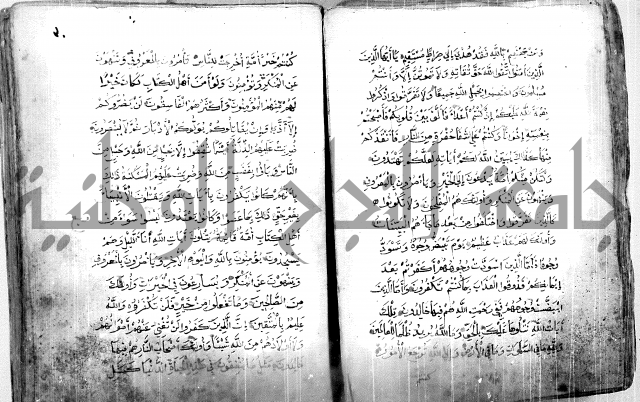 ومن يعتصم بالله فقد هدي الى صراط مستقيم يا ايها الذين
الذين امنوا اتقوا الله حق تقاته ولا تموتن الا وانتم
مسلمون واعتصموا بحبل الله جميعا ولا تفرقوا واذكروا
نعمة الله عليكم اذ كنتم اعداء فألف بين قلوبكم فأصبحتم
بنعمته اخوانا وكنتم على شفا حفرة من النار فأنقذكم
منها كذلك يبين الله لكم اياته لعلكم تهتدون
ولتكن منكم امة يدعون الى الخير ويأمرون بالمعروف
وينهون عن المنكر واولئك هم المفلحون ولا تكونوا
كالذين تفرقوا واختلفوا من بعد ما جاءهم البينات
واولئك لهم عذاب عظيم يوم تبيض وجوه وتسود
وجوه فأما الذين اسودت وجوههم أكفرتم بعد
ايمانكم فذوقوا العذاب بما كنتم تكفرون وأما الذين
ابيضت وجوههم ففي رحمت الله هم فيها خالدون تلك
ايات الله نتلوها عليك بالحق وما الله يريد ظلما للعالمين
ولله ما في السموات وما في الارض والى الله ترجع الامور
كنتم
كنتم خير أمة أخرجت للناس تأمرون بالمعروف وتنهون
عن المنكر وتؤمنون ولو أمن أهل الكتاب لكان خيرا
لهم منهم المؤمنون وأكثرهم الفاسقون لن يضروكم
إلا أذى وإن يقاتلوكم يولوكم الأدبار ثم لا ينصرون
ضربت عليهم الذلة أينما ثقفوا إلا بحبل من الله وحبل من
الناس وباءوا بغضب من الله وضربت عليهم المسكنة ذلك
بأنهم كانوا يكفرون بآيات الله ويقتلون الأنبياء
بغير حق ذلك بما عصوا وكانوا يعتدون ليسوا سواء من
أهل الكتاب أمة قائمة يتلون آيات الله آناء الليل وهم
يسجدون يؤمنون بالله واليوم الآخر ويأمرون بالمعروف
وينهون عن المنكر ويسارعون في الخيرات وأولئك
من الصالحين وما تفعلوا من خير فلن تكفروه والله
عليم بالمتقين إن الذين كفروا لن تغني عنهم أموالهم
ولا أولادهم من الله شيئا وأولئك أصحاب النار هم فيها
خالدون مثل ما ينفقون في هذه الحياة الدنيا كمثل
جامعة النجاح الوطنية